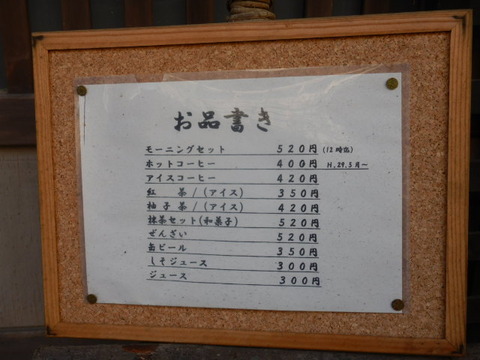 お品書き
モーニングセット 520円 (12時迄)
ホットコーヒー 400円 H,29,5月~
アイスコーヒー 420円
紅 茶 / (アイス) 350円
柚子茶 / (アイス) 420円
抹茶セット(和菓子) 520円
ぜんざい 520円
缶ビール 350円
しそジュース 300円
ジュース 300円